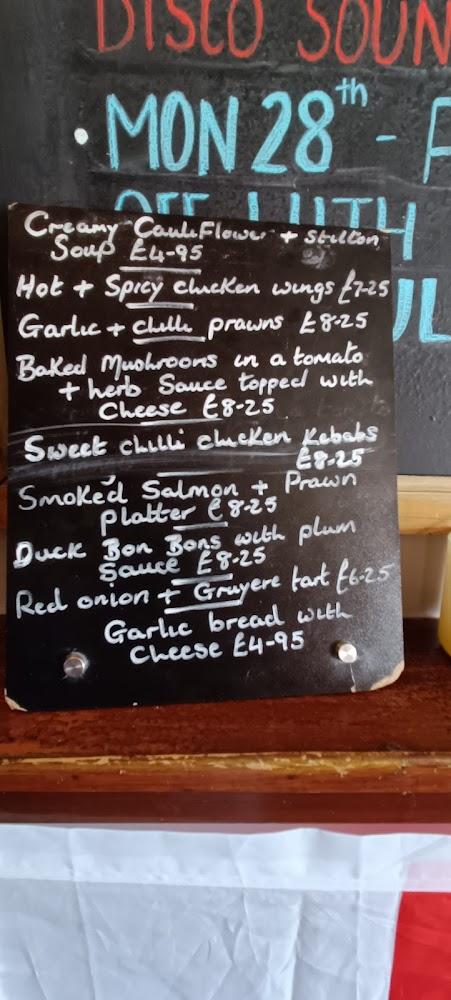 DISCO SOUN
• MON 28th - F
OFF WITH
UL
Creamy Cauliflower + Stilton
Soup £4-95
Hot + Spicy chicken wings £7-25
Garlic + chilli prawns £8-25
Baked Mushrooms in a tomato
+ herb Sauce topped with
Cheese £8-25
Sweet chilli chicken Kebabs
£8-25
Smoked Salmon + Prawn
platter £8-25
Duck Bon Bons with plum
Sauce £8-25
Red onion + Gruyere tart £6-25
Garlic bread with
cheese £4-95